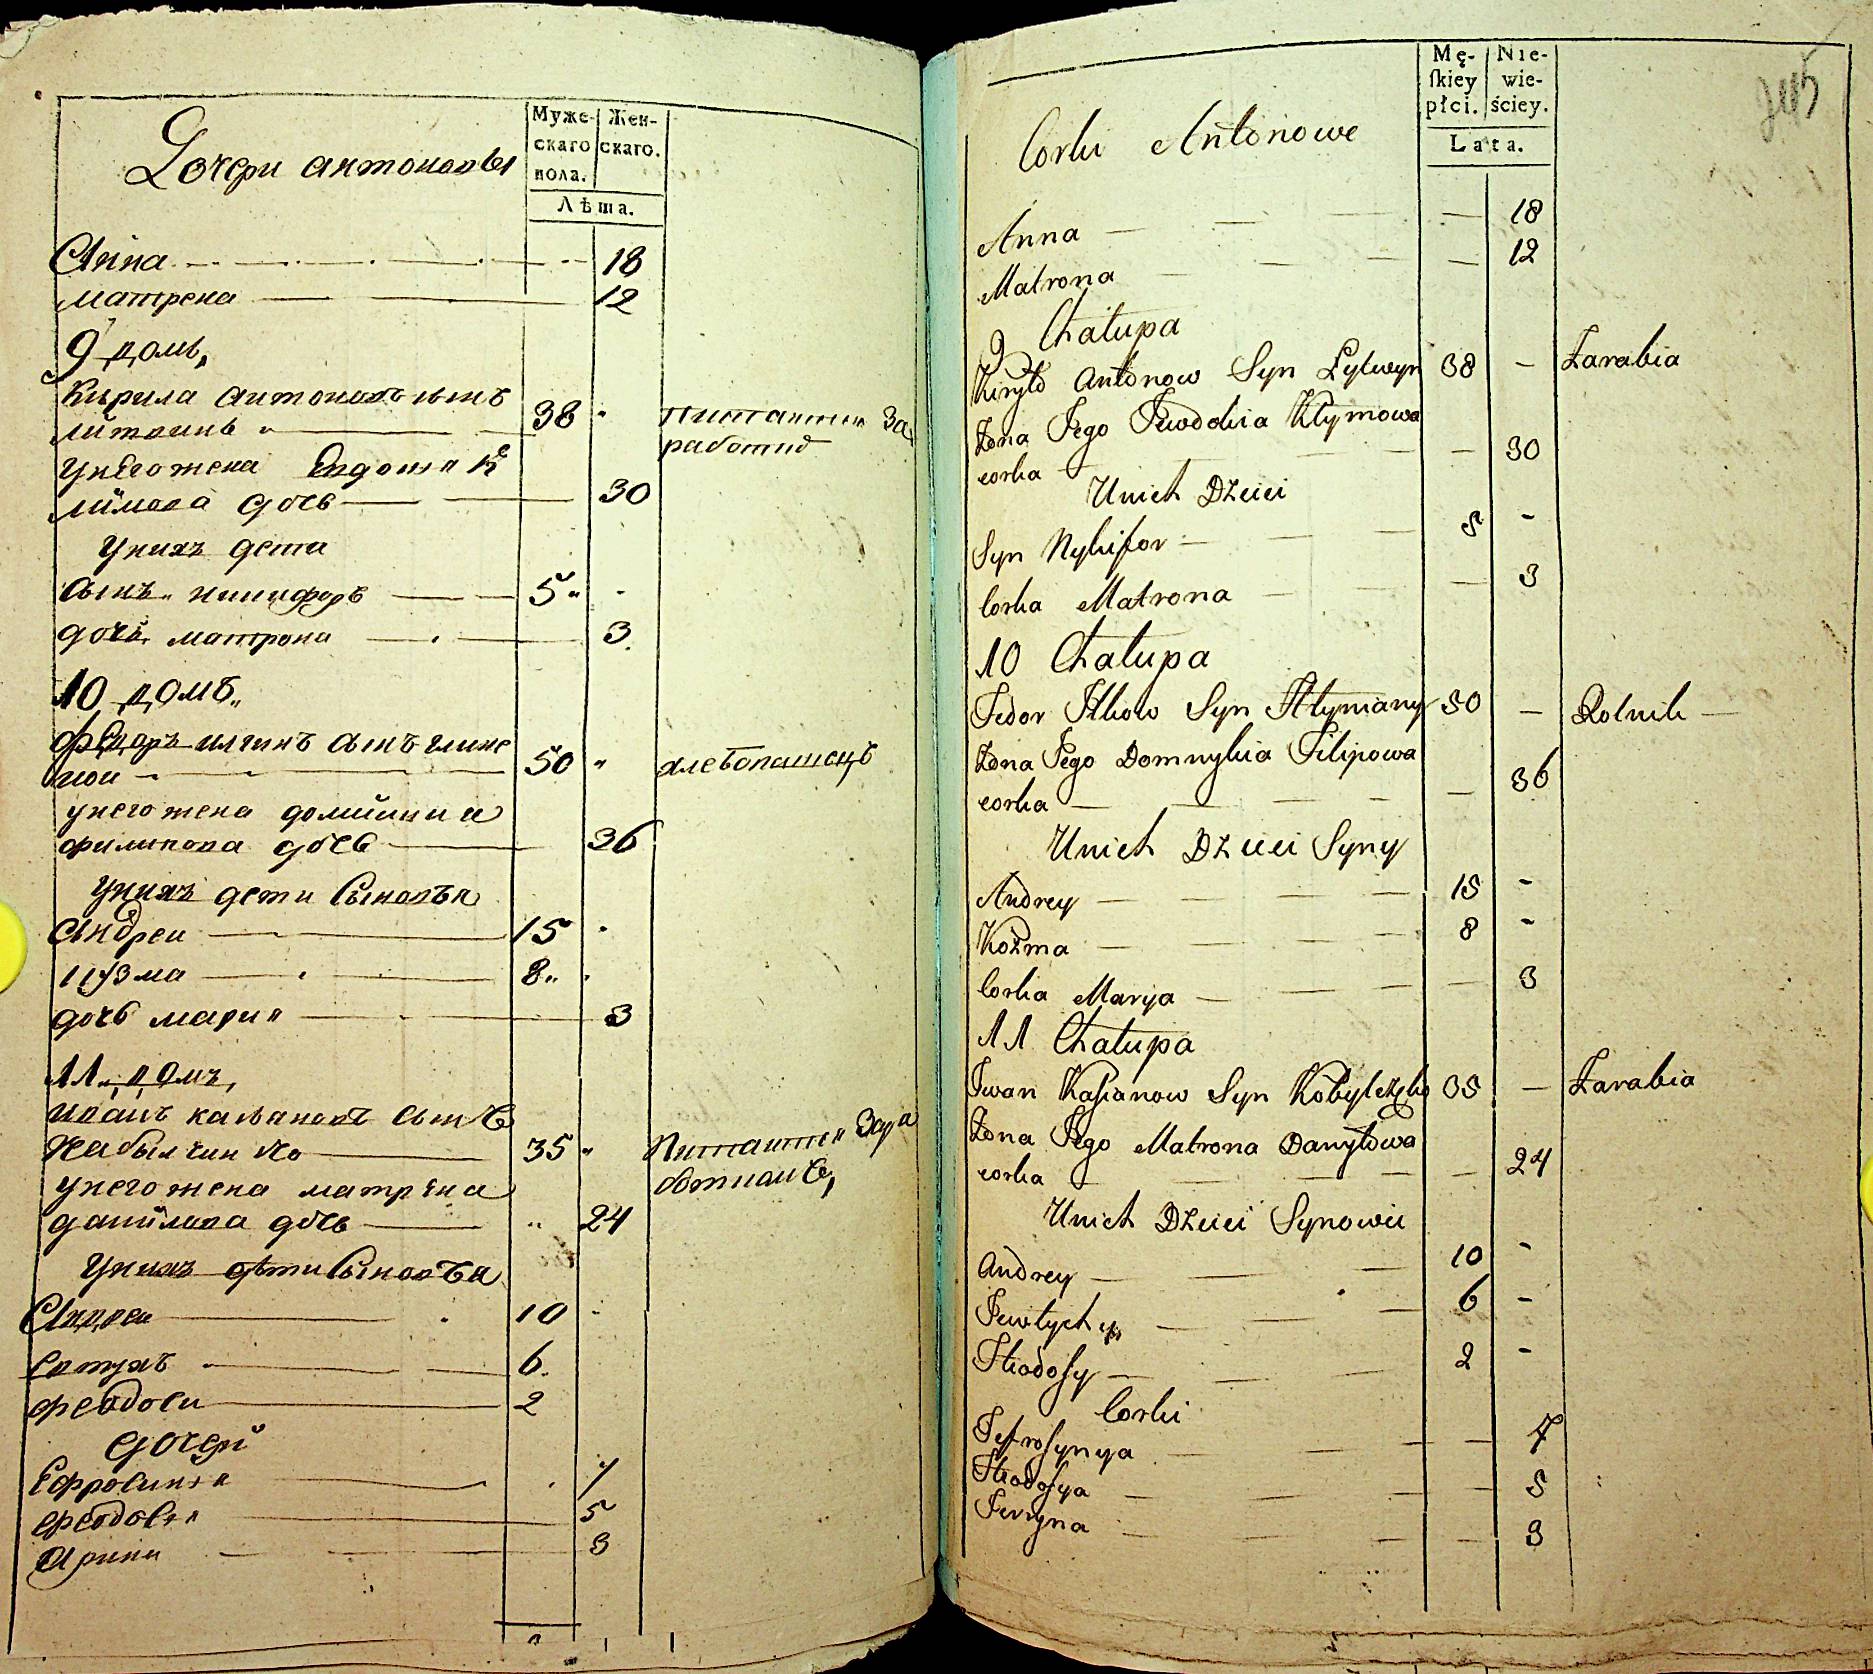 Дочери антоновы
Муже- Жен-
скаго скаго.
пола.
Лѣта.
Анна 18
матрена 12
9 домъ,
Кирила антоновъ сынъ
литвинъ 38 " питаится за
работню
унего жена Евдокия К
лимова дочь 30
Унихъ дети
сынъ никифоръ 5 "
дочь матрона 3
10 домъ
федоръ илкинъ сынъ
50 " хлебопашецъ
унего жена домникиа
филипова дочь 36
Унихъ дети сыновья
Андреи 15
кузма 8
дочь мария 3
11 домъ,
иванъ касяновъ сынъ
Кабылчинко 35 " Питаится Зара
ботками,
унего жена матрена
данилова дочь " 24
Унихъ дѣти сыновья
Андреи 10
евтухъ 6
феодоси 2
дочери
Ефросиния 7
феодосия 5
Ирина 3
Mę- Nie-
ſkiey wie-
płci. ściey.
Lata.
Corki Antonowe
Anna 18
Matrona 12
9 Chałupa
Kiryło Antonow Syn Lytwyn 38 - Zarabia
Zona Jego Jewdokia Kłymowa
corka 30
Unich Dzieci
Syn Nykifor 5 -
Corka Matrona 3
10 Chałupa
Fedor Jlkow Syn Hłymiany 50 — Rolnik
Zona Jego Domnykia Filipowa
corka 36
Unich Dzieci Syny
Andrey 15 -
Kozma 8 -
Corka Marya 3
11 Chałupa
Jwan Kasianow Syn Kobylczęko 35 — Zarabia
Zona Jego Matrona Danyłowa
corka 24
Unich Dzieci Synowie
Andrey 10 -
Jewtych 6 -
Theodosy 2 -
Corki
Jefrosynya 7
Theodosya 5
Jeryna 3